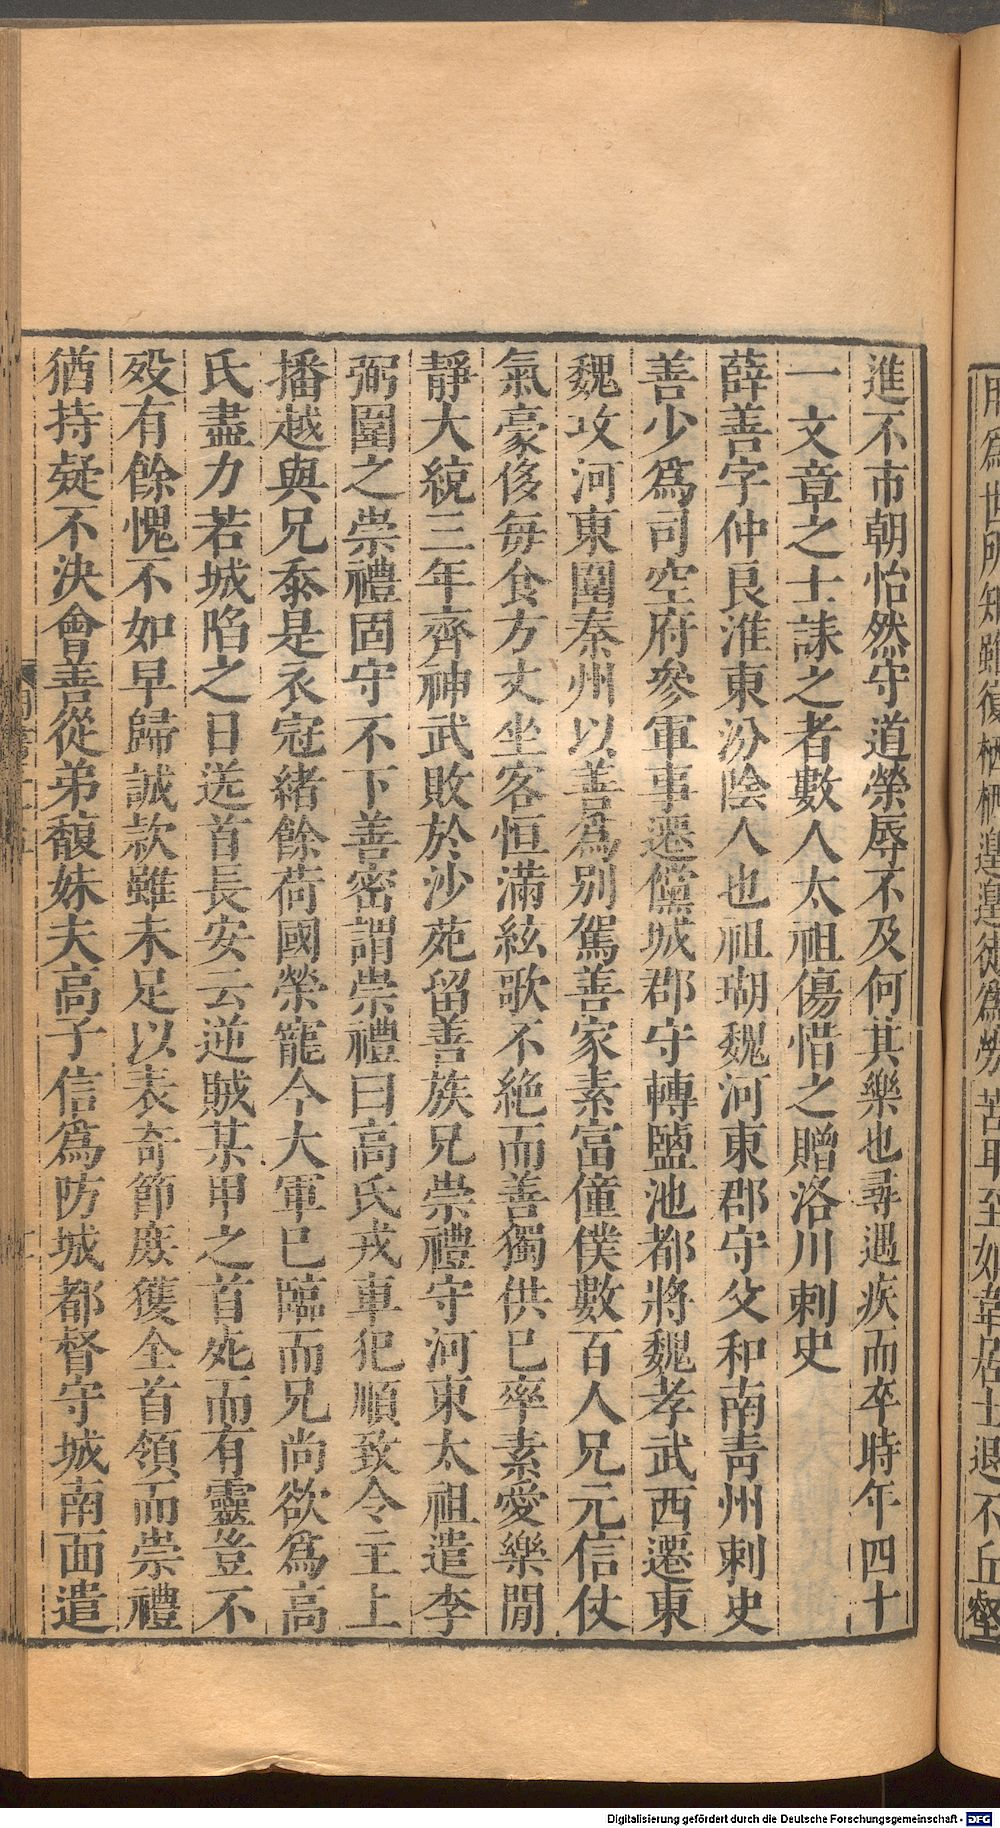 進不市朝怡然守道榮辱不及何其樂也尋遇疾而卒時年四十
一文章之士誄之者數人太祖傷惜之贈洛川刺史
薛善字仲良淮東汾陰人也祖瑚魏河東郡守父和南青州刺史
善少爲司空府參軍事遷儻城郡守轉鹽池都將魏孝武西遷東
魏攻河東圍秦州以善爲別駕善家素富僮僕數百人兄元信仗
氣豪侈每食方丈坐客恒滿絃歌不絶而善獨供已率素愛樂閒
靜大統三年齊神武敗於沙苑留善族兄崇禮守河東太祖遣李
弼圍之崇禮固守不下善密謂崇禮曰高氏戎車犯順致令主上
播越與兄忝是衣冠緒餘荷國榮寵今大軍已臨而兄尚欲爲高
氏盡力若城陷之日送首長安云逆賊某甲之首死而有靈豈不
歿有餘愧不如早歸誠款雖未足以表奇節庶獲全首領而崇禮
猶持疑不決會善從弟馥妹夫高子信爲防城都督守城南面遣
Digitalisierung gefördert durch die Deutsche Forschungsgemeinschaft - DFG